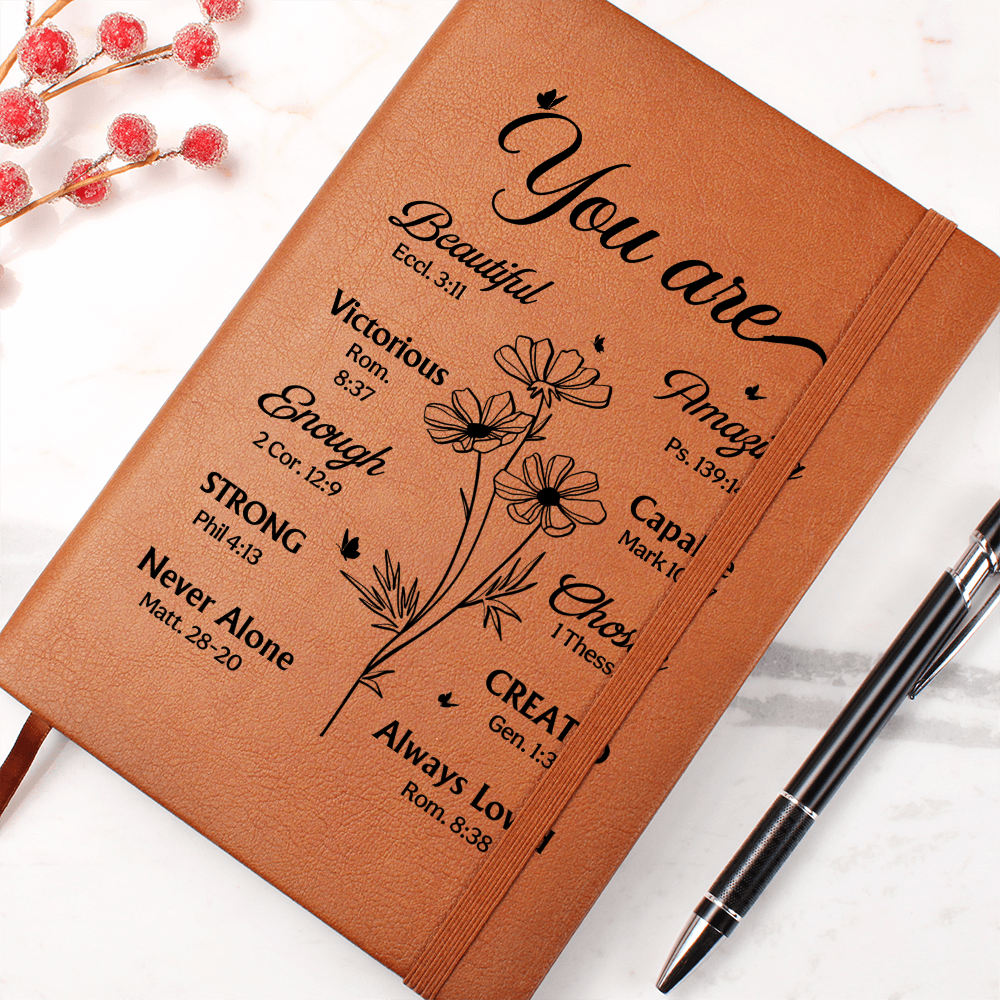 You are
Beautiful
Eccl. 3:11
Victorious
Rom.
8:37
Enough
2 Cor. 12:9
STRONG
Phil 4:13
Never Alone
Matt. 28-20
Ps. 139:14
Mark
1 Thess
Gen. 1:3
Always
Rom. 8:38